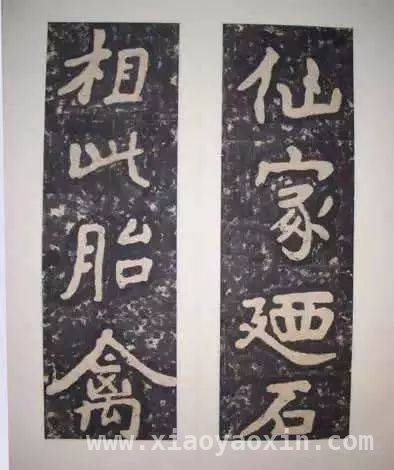 仙家廼石
相此胎禽
www.xiaoyaoxin.com